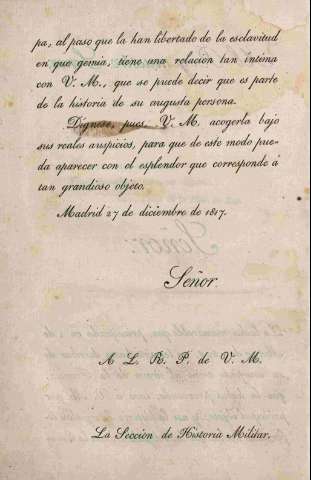 pa, al paso que la han libertado de la esclavitud
en que gemia, tiene una relacion tan intima
con V. M., que se puede decir que es parte
de la historia de su augusta persona.
Dígnese, pues, V. M. acogerla bajo
sus reales auspicios, para que de este modo pue-
da aparecer con el esplendor que corresponde á
tan grandioso objeto.
Madrid 27 de diciembre de 1817.
Señor.
A L. R. P. de V. M.
La Seccion de Historia Militar.